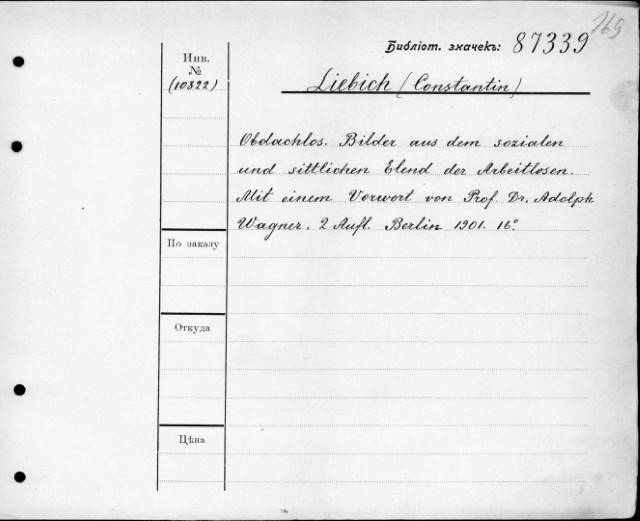 169
Библіот. значекъ: 87339
Инв.
№
(10822)
Liebich (Constantin)
Obdachlos. Bilder aus dem sozialen
und sittlichen Elend der Arbeitlosen.
Mit einem Vorwort von Prof. Dr. Adolph
Wagner. 2 Aufl. Berlin 1901. 16°
По заказу
Откуда
Цѣна